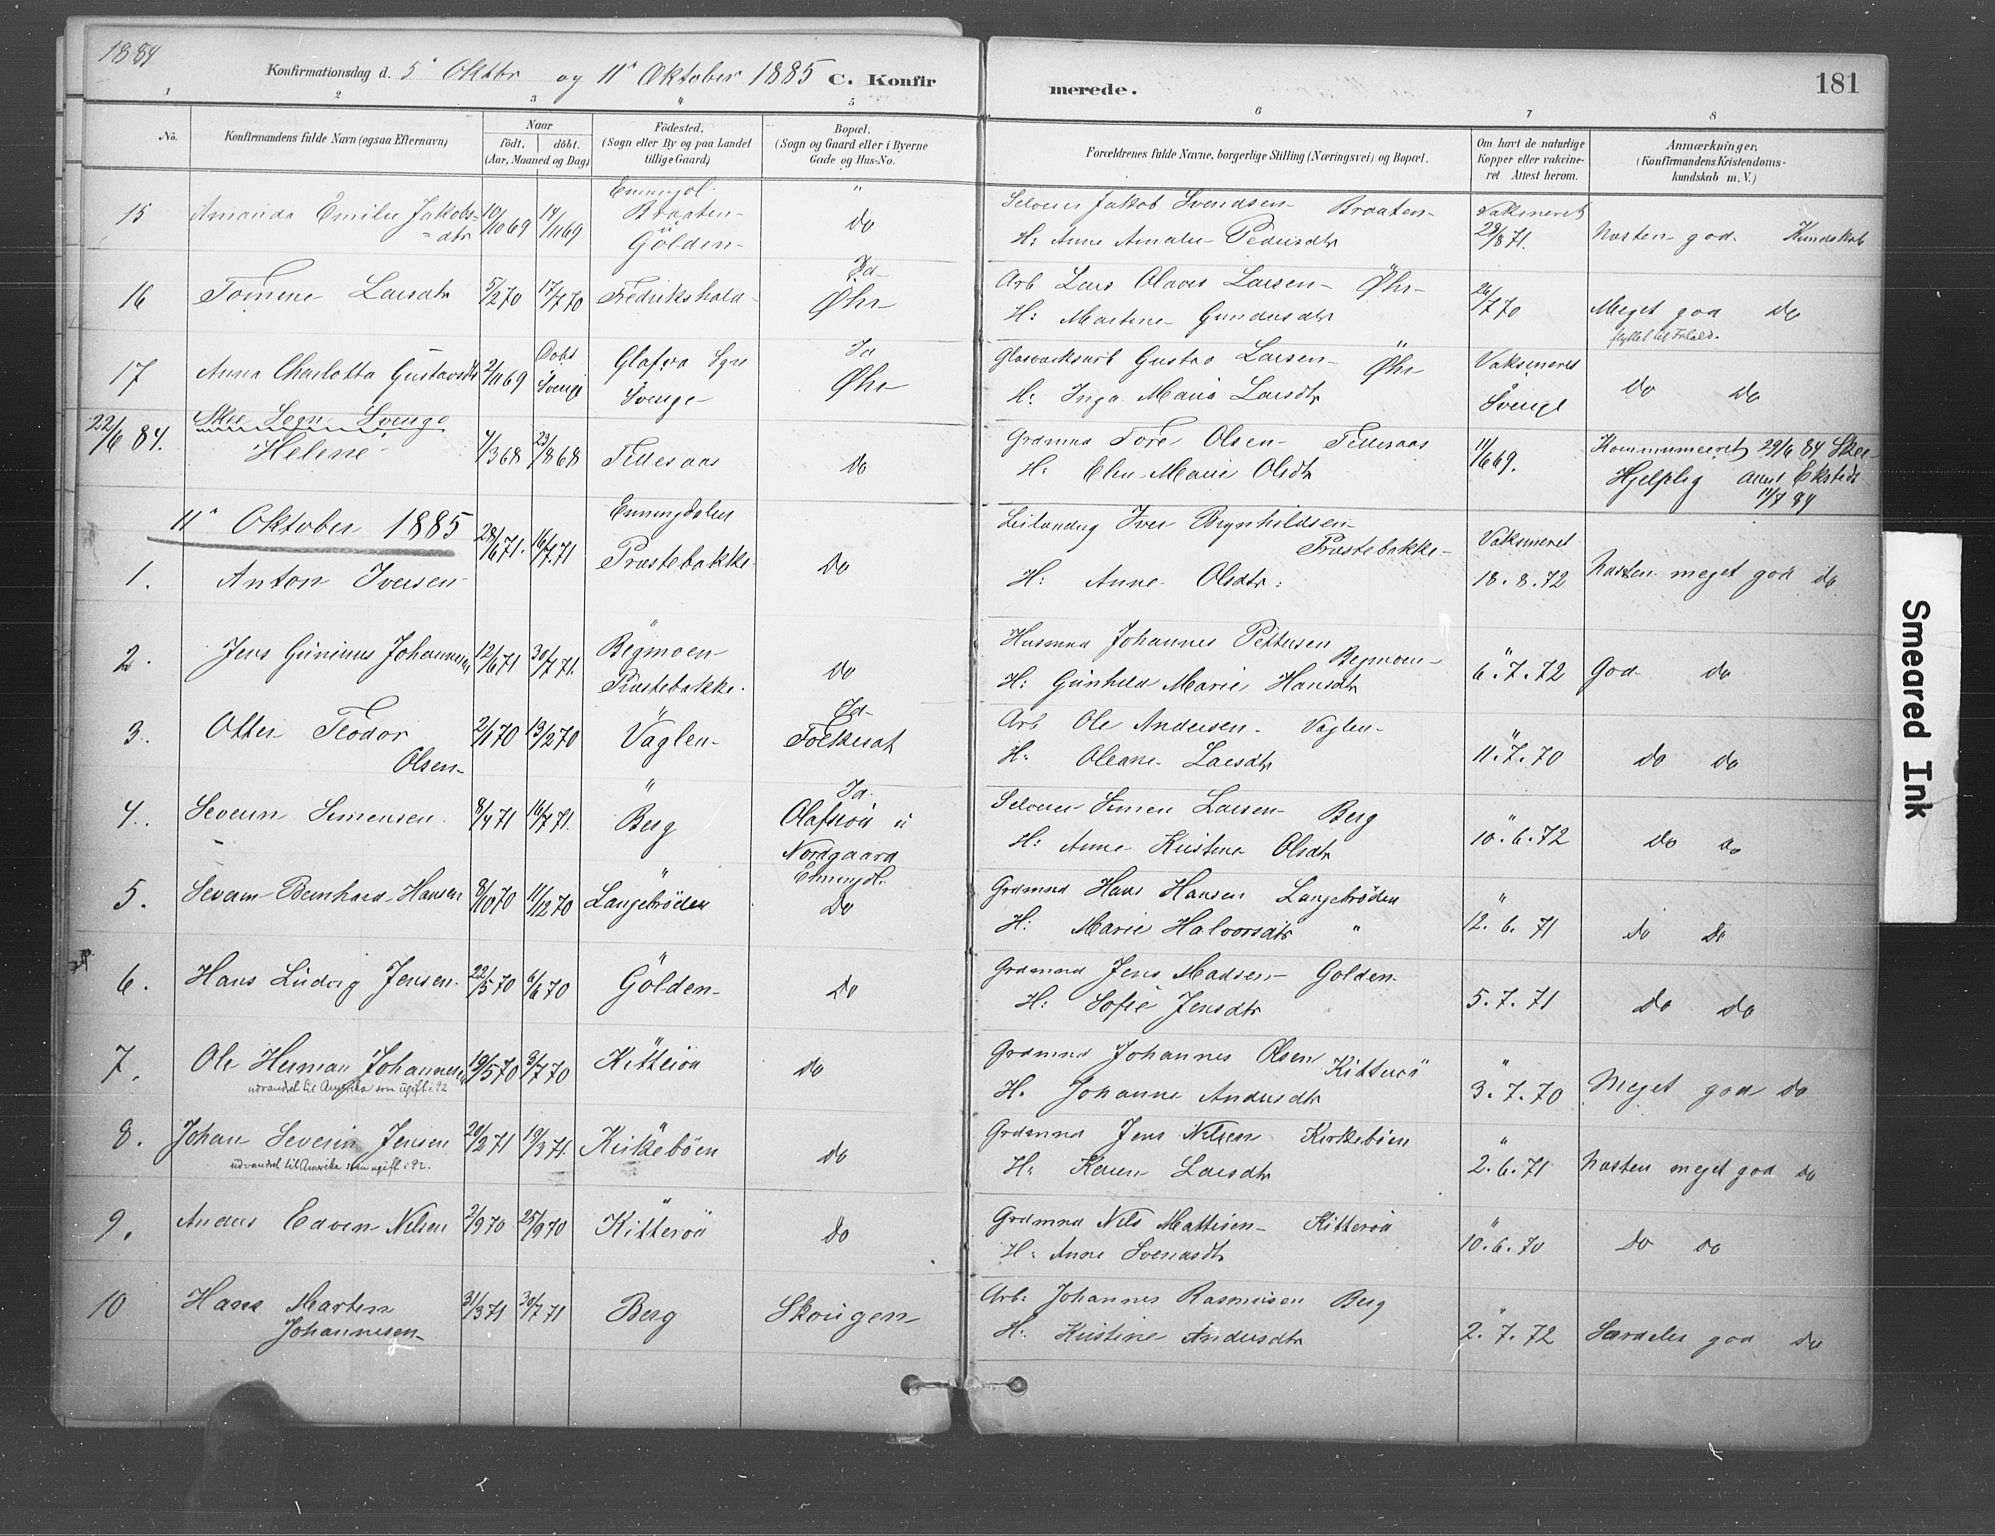 1884
Konfirmationsdag d. 5' Oktbr og 11' Oktober 1885 C. Konfirmerede. 181
1 2 3 4 5 6 7 8
No. Konfirmandens fulde Navn (ogsaa Efternavn) Naar födt. döbt. (Aar, Maaned og Dag) Födested. (Sogn eller By og paa Landet tillige Gaard) Bopæl. (Sogn og Gaard eller i Byerne Gade og Hus-No. Forældrenes fulde Navne, borgerlige Stilling (Næringsvei) og Bopæl. Om havt de naturlige Kopper eller vakcineret Attest herom. Anmærkninger. (Konfirmandens Kristendomskundskab m. V.)
15 Amanda Emilie Jakobsdtr 10/10 69 14/11 69 Enningdal Braaten Gölden " do Selveier Jakob Svendsen Braaten
H: Anne Amalie Pedersdtr Vaksineret 29/8 71. Næsten god Kundskab
16 Tomine Larsdtr 5/2 70 17/7 70 Fredrikshald Id Øhr Arb Lars Olaves Larsen Øhr
H: Martine Gundersdtr 26/7 70 Meget god do
flyttet til Frhald.
17 Anna Charlotta Gustavsdtr 2/11 69 Döbt Sverige Glafva Sgn Sverige Id Øhr Glasværksarb Gustav Larsen Øhr
H: Inga Maria Larsdtr Vaksineret Sverige do do
22/6 84. Skee Segn Sverige
Heline 4/3 68 23/8 68 Tillesaas do Grdmnd Tore Olsen Tillesaas
H: Elen Marie Olsdtr 11/6 69. Kommuniceret 29/6 84 Skee
Hjelplig Attest Ekstedt 11/7 84
11' Oktober 1885
1. Anton Iversen 28/6 71. 16/7 71 Enningdalen Præstebakke do Leilændng Iver Brynhildsen Præstebakke
H: Anne Olsdtr. Vaksineret 18. 8. 72 Næsten meget god do
2. Jens Gunerius Johannesen 12/6 71 30/7 71. Bøgmoen Præstebakke. do Husmnd Johannes Pettersen Bøgmoen
H: Gunhild Marie Hansdtr " 6. 7. 72 God do
3. Otter Teodor Olsen 2/1 70 13/2 70 Vaglen Id Torkerat Arb Ole Andersen. Vaglen
H. Oleane Larsdtr " 11. 7. 70 do do
4. Severin Simensen. 8/4 71 16/7 71. " Berg Id. Olafsröa u Nordgaard Selveier Simen Larsen Berg
H: Anne Kristine Olsdtr " 10. 6. 72 do do
5. Bernhard Hansen 8/10 70 11/12 70 " Langebröden Enningdl. Do Grdmnd Hans Hansen Langebröden
H. Marie Halvorsdtr " " 12. 6. 71 do Do
6. Hans Ludvig Jensen 22/5 70 6/6 70 Gölden do Grdmnd Jens Madsen Golden
H: Sofie Jensdtr 5. 7. 71 do do
7. Ole Herman Johannesen 19/5 70 3/7 70 Kitteröa do Grdmnd Johannes Olsen Kitteröa
udvandet til Amerika som ugift i 92
H. Johanne Andersdtr " 3. 7. 70 Meget god do
8. Johan Severin Jensen 20/2 71 19/3 71. Kirkeböen do Grdmnd Jens Nilsen Kirkeböen
udvandet til Amerika som ugift i 92.
H: Karen Larsdtr " 2. 6. 71 Næsten meget god do
9. Anders Edvin Nilsen 2/9 70 25/9 70 Kitteröa do Grdmnd Nils Mattisen Kitteröa
H. Anne Svendsdtr " 10. 6. 70 do do
10 Hans Martin Johannesen 31/3 71 30/7 71 Berg Skougen Arb: Johannes Rasmusen Berg
H. Kristine Andersdtr " 2. 7. 72 Særdeles god do
Smeared Ink